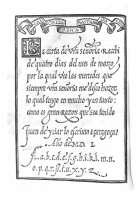 La carta de Vra señoria Recibi
de quatro dias del mes de março
por la qual vi las mercedes que
siempre vra señoria me haze
lo qual tengo en mucho y en tanto
como es gran razon que sea tenido
Juan de yciar lo
año de M D L
.f.a.b.c.d.e.f.g.h.i.k.l.m.n.
.o.p.q.r.s.t.u.x.y.z.